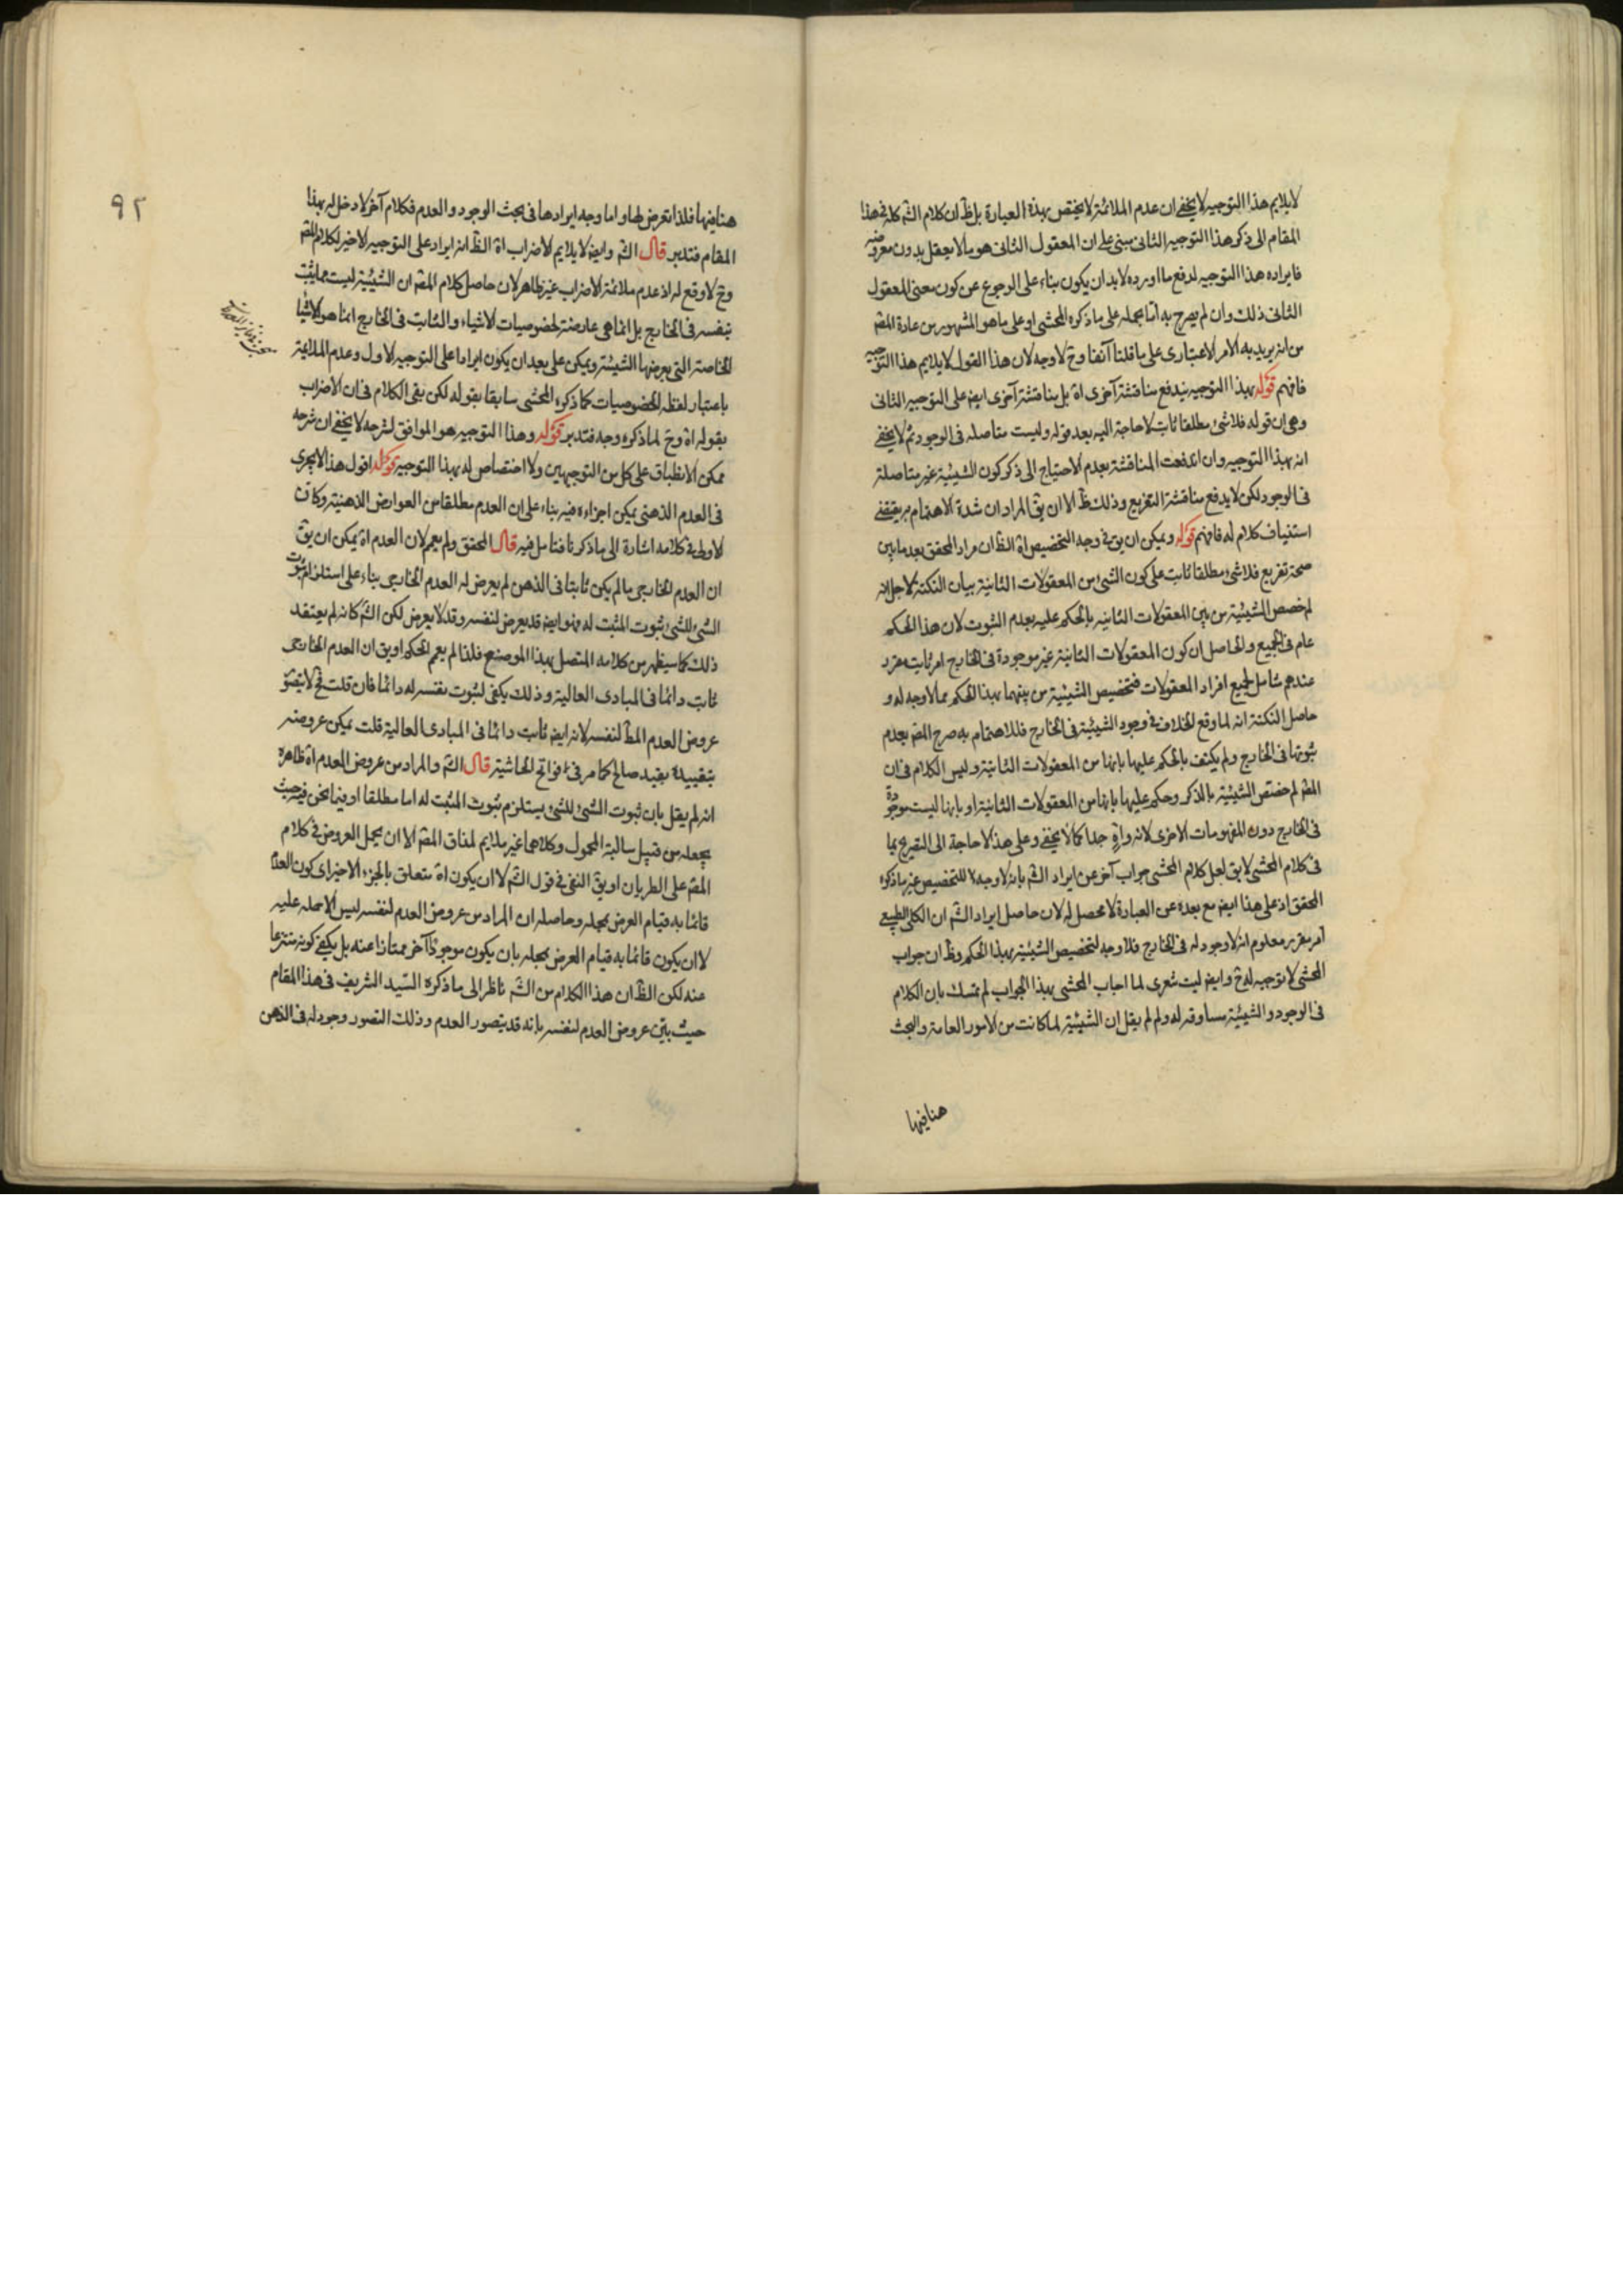 لا يلايم هذا التوجيه لا يخفى ان عدم الملائمة لا يختص بهذه العبارة بل ظ ان كلام الشم كله فى هذا
المقام الى ذكر هذا التوجيه الثانى مبنى على ان المعقول الثانى هو ما لا يعقل بدون معروضه
فايراده هذا التوجيه لدفع ما اورده لا بد ان يكون بناء على الرجوع عن كون معنى المعقول
الثانى ذلك وان لم يصرح به اما بحمله على ما ذكره المحشى او على ما هو المشهور من عادة المقم
من انه يريد به الامر الاعتبارى على ما قلنا آنفا وح لا وجه لان هذا القول لا يلايم هذا التوجيه
فافهم قوله بهذا التوجيه يندفع مناقشة آخرى اه بل مناقشة آخرى ايض على التوجيه الثانى
وهى ان قوله فلا شئ مطلقا ثابت لا حاجة اليه بعد قوله وليست متاصله فى الوجود ثم لا يخفى
انه بهذا التوجيه وان اندفعت المناقشة بعدم الاحتياج الى ذكر كون الشيئية غير متاصلة
فى الوجود لكن لا يدفع مناقشة التفريع وذلك ظ الا ان يق المراد ان شدة الاهتمام به يقتضى
استيناف كلام له فافهم قوله ويمكن ان يق فى وجه التخصيص اه الظ ان مراد المحقق بعد ما بين
صحة تفريع فلا شئ مطلقا ثابت على كون الشئ من المعقولات الثانية بيان النكتة لاجل انه
لم خصص الشيئية من بين المعقولات الثانيه بالحكم عليه بعدم الثبوت لان هذا الحكم
عام فى الجميع والحاصل ان كون المعقولات الثانية غير موجودة فى الخارج امر ثابت مقرر
عندهم شامل لجميع افراد المعقولات فتخصيص الشيئية من بينهما بهذا الحكم مما لا وجه له و
حاصل النكتة انه لما وقع الخلاف فى وجود الشيئية فى الخارج فللاهتمام به صرح المقم بعدم
ثبوتها فى الخارج ولم يكتف بالحكم عليها بانها من المعقولات الثانية وليس الكلام فى ان
المقم لم خصص الشيئية بالذكر وحكم عليها بانها من المعقولات الثانية او بانها ليست موجودة
فى الخارج دون المفهومات الاخرى لانه واهٍ جدا كما لا يخفى وعلى هذا لا حاجة الى التصريح بما
فى كلام المحشى لا يق لعل كلام المحشى جواب آخر عن ايراد الشم بانه لا وجه للتخصيص غير ما ذكره
المحقق اذ على هذا ايض مع بعده عن العبارة لا محصل له لان حاصل ايراد الشم ان الكلى الطبيعى
امر مقرر معلوم انه لا وجود له فى الخارج فلا وجه لتخصيص الشيئية بهذا الحكم وظ ان جواب
المحشى لا توجيه له ح وايض ليت شعرى لما اجاب المحشى بهذا الجواب لم تمسك بان الكلام
فى الوجود والشيئية مساوقه له ولم لم يقل ان الشيئية لما كانت من الامور العامة والبحث
هنا فيها
٩٢
هنا فيها فلذا تعرض لها واما وجه ايرادها فى بحث الوجود والعدم فكلام آخر لا دخل له بهذا
المقام فتدبر قال الشم وايض لا يلايم الاضراب اه الظ انه ايراد على التوجيه الاخير لكلام المقم
وح لا وقع له اذ عدم ملائمة الاضراب غير ظاهر لان حاصل كلام المقم ان الشيئية ليست مما يثبت
بنفسه فى الخارج بل انما هى عارضة لخصوصيات الاشياء والثابت فى الخارج انما هو الاشيا
الخاصة التى يعرضها الشيئية ويمكن على بعد ان يكون ايرادا على التوجيه الاول وعدم الملايمة
باعتبار لفظه الخصوصيات كما ذكره المحشى سابقا بقوله لكن بقى الكلام فى ان الاضراب
بقوله اه وح لما ذكره وجه فتدبر قوله وهذا التوجيه هو الموافق لشرحه لا يخفى ان شرحه
ممكن الانطباق على كل من التوجيهين ولا اختصاص له بهذا التوجيه قوله اقول هذا لا يجرى
فى العدم الذهنى يمكن اجراءه فيه بناء على ان العدم مطلقا من العوارض الذهنية وكان
الاولى فى كلامه اشارة الى ما ذكرنا فتامل فيه قال المحقق ولم يعمم لان العدم اه يمكن ان يق
ان العدم الخارجى ما لم يكن ثابتا فى الذهن لم يعرض له العدم الخارجى بناء على استلزام ثبوت
الشئ للشئ ثبوت المثبت له فهو ايض قد يعرض لنفسه وقد لا يعرض لكن الشم كانه لم يعتقد
ذلك كما سيظهر من كلامه المتصل بهذا الموضع فلذا لم يعمم الحكم او يق ان العدم الخارجى
ثابت دائما فى المبادى العالية وذلك يكفى لثبوت نفسه له دائما فان قلت فح لا يتصور
عروض العدم المط لنفسه لانه ايض ثابت دائما فى المبادى العالية قلت يمكن عروضه
بتقييده بقيد صالح كما مر فى فواتح الحاشية قال الشم والمراد من عروض العدم اه ظاهره
انه لم يقل بان ثبوت الشئ للشئ يستلزم ثبوت المثبت له اما مطلقا او فيما نحن فيه حيث
يجعله من قبيل سالبة المحمول وكلاهما غير ملايم لمذاق المقم الا ان يحمل العروض فى كلام
المقم على الطريان او يق النفى فى قول الشم لا ان يكون اه متعلق بالجزء الاخير اى كون العدم
قائما به قيام العرض بمحله وحاصله ان المراد من عروض العدم لنفسه ليس الا حمله عليه
لا ان يكون قائما به قيام العرض بمحله بان يكون موجودا آخر ممتازا عنه بل يكفى كونه منتزعا
عنه لكن الظ ان هذا الكلام من الشم ناظر الى ما ذكره السيد الشريف فى هذا المقام
حيث بين عروض العدم لنفسه بانه قد يتصور العدم وذلك التصور وجود له فى الذهن